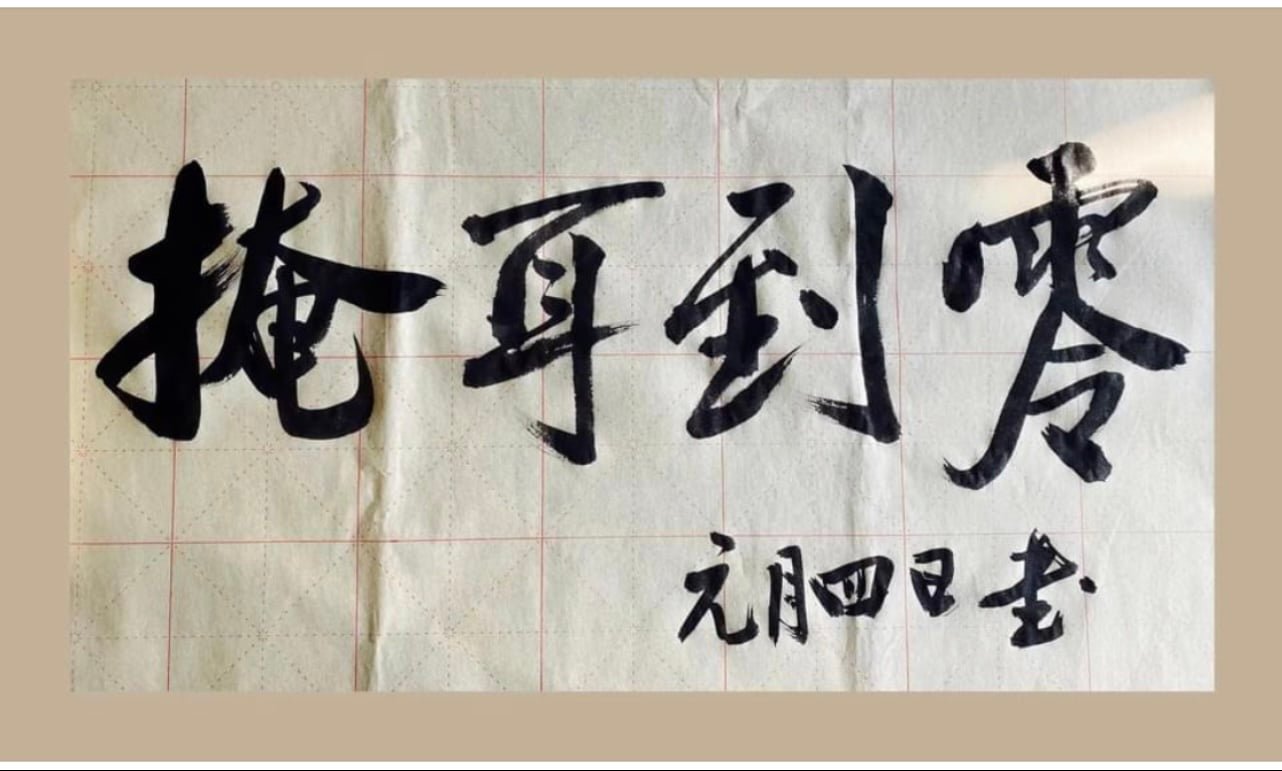 掩耳到零
元月四日书